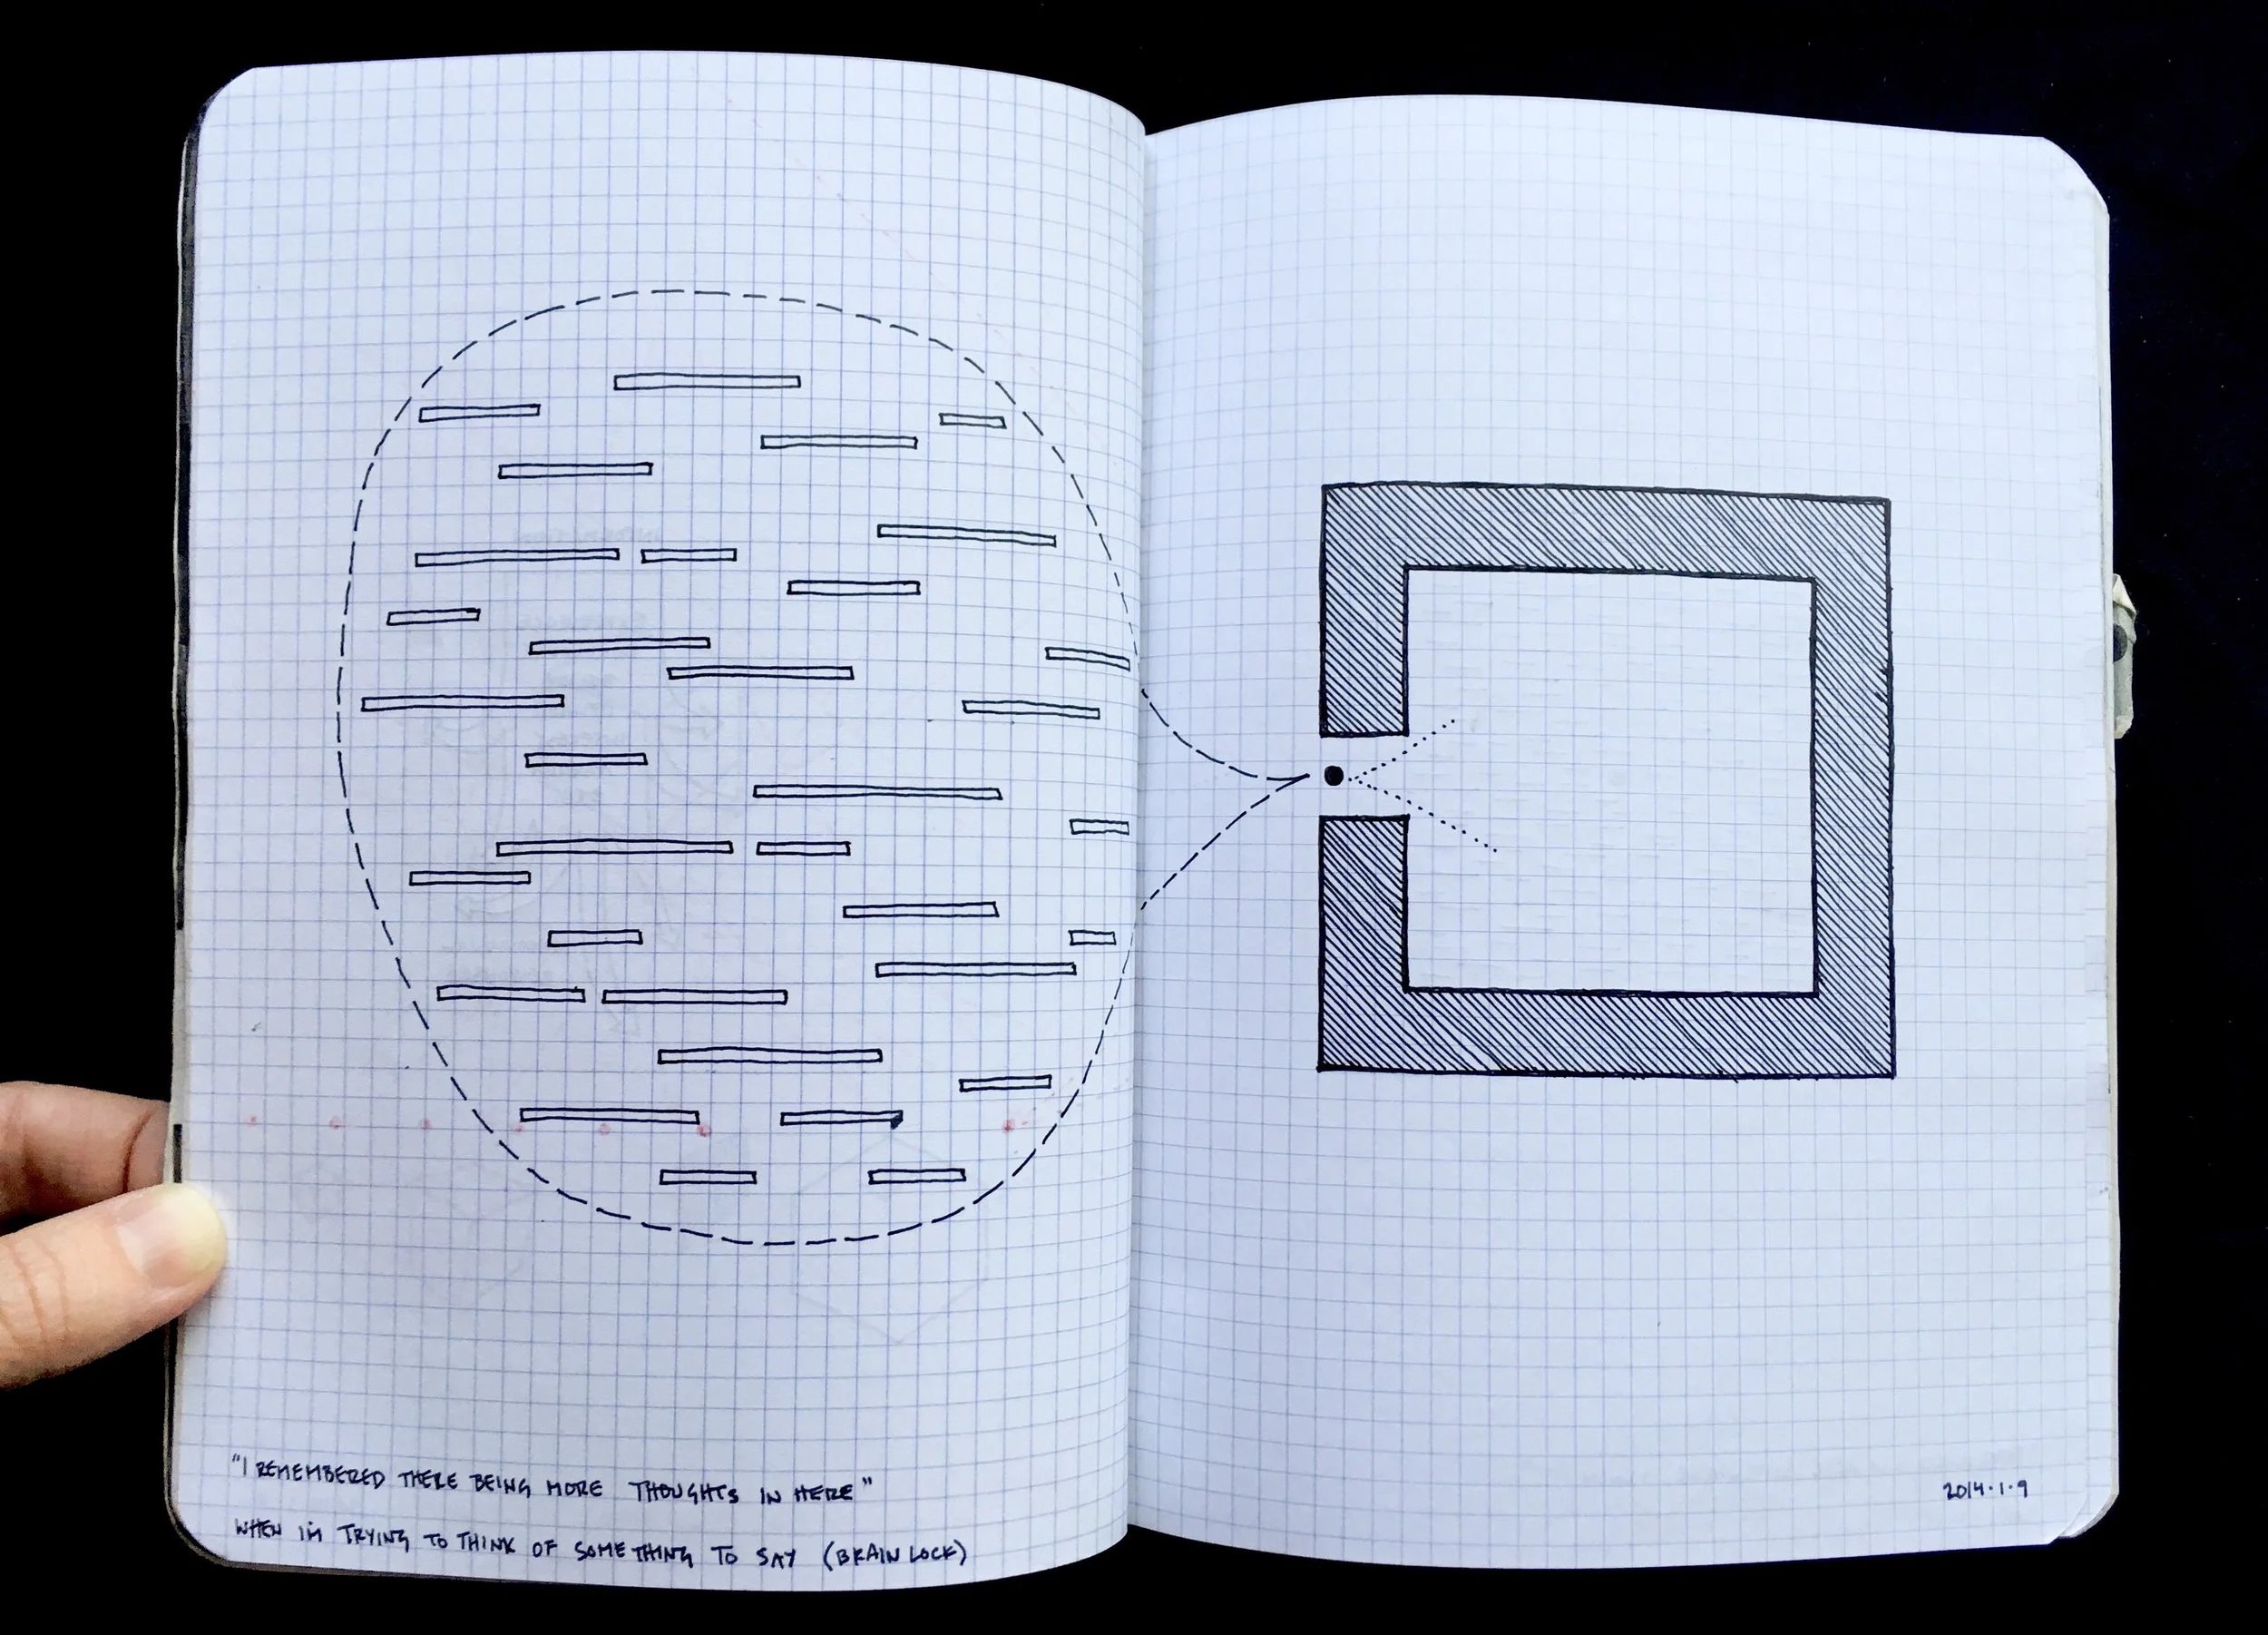 "I REMEMBERED THERE BEING MORE THOUGHTS IN HERE"
WHEN I'M TRYING TO THINK OF SOMETHING TO SAY (BRAIN LOCK)
2014.1.9